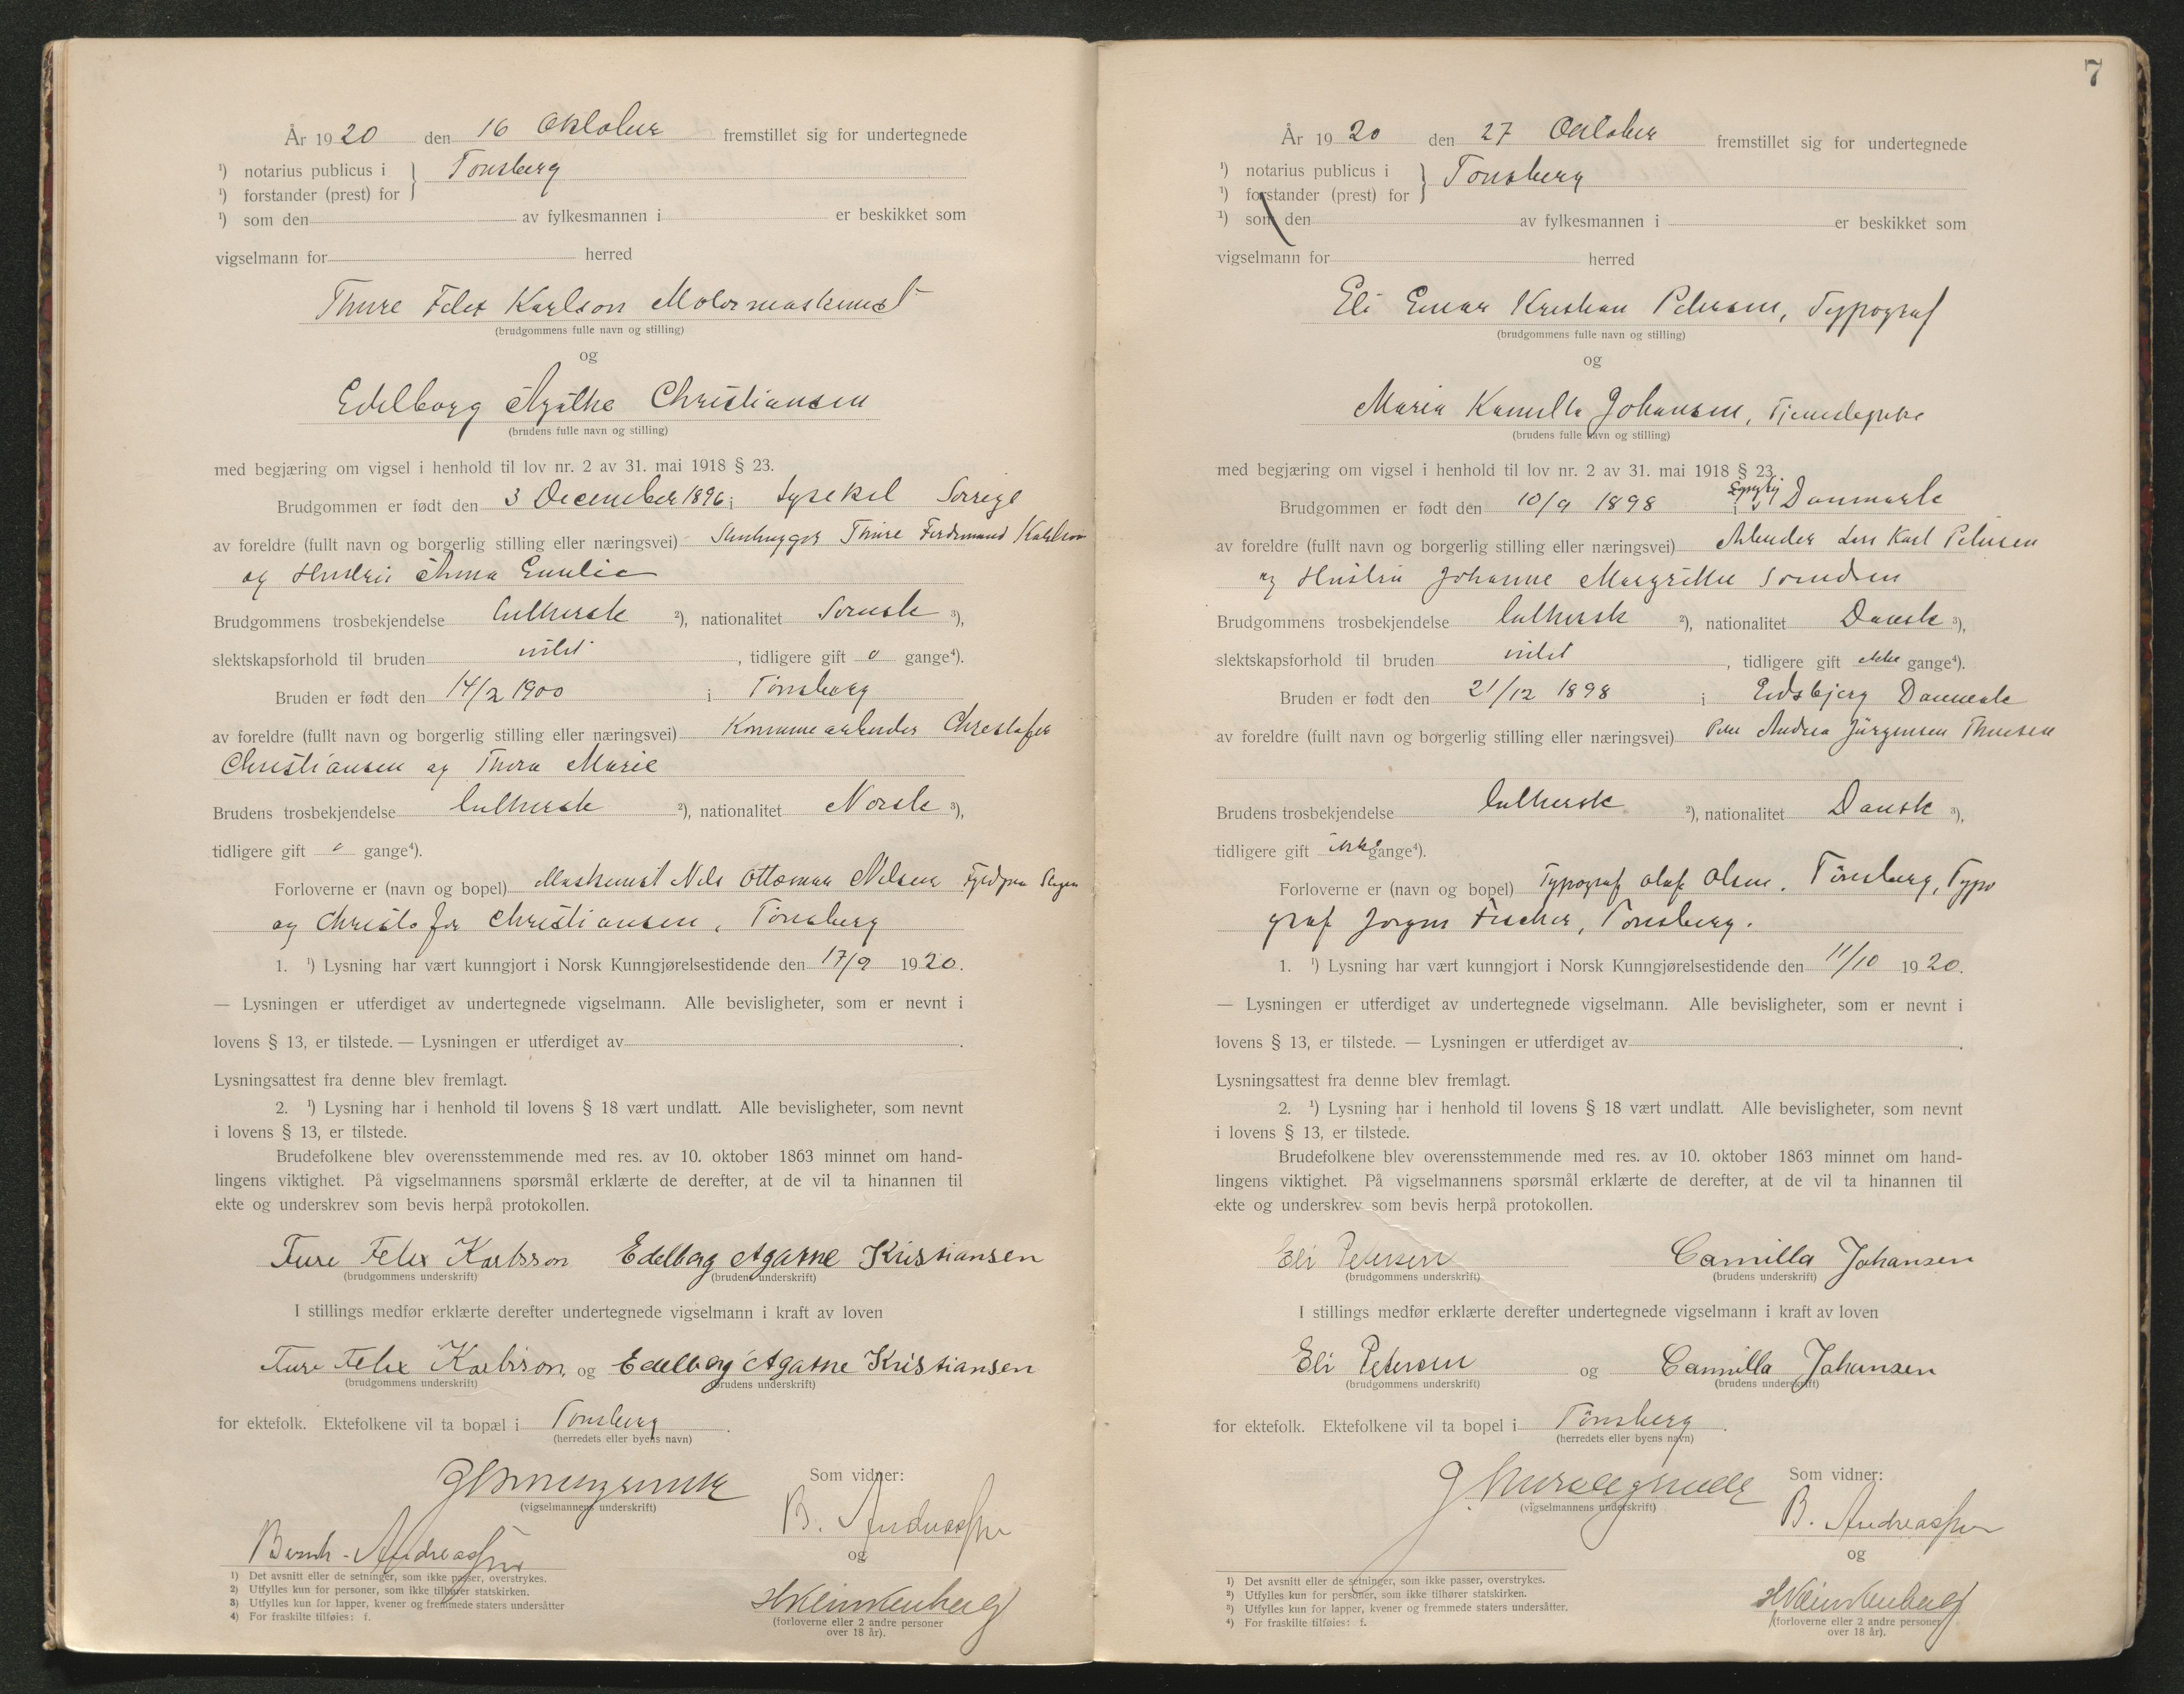 År 1920 den 16 Oktober fremstillet sig for undertegnede
¹) notarius publicus i } Tønsberg
¹) forstander (prest) for
¹) som den av fylkesmannen i er beskikket som
vigselmann for herred
Thure Felix Karlson Motormaskinist
(brudgommens fulle navn og stilling)
og
Edelborg Agathe Christiansen
(brudens fulle navn og stilling)
med begjæring om vigsel i henhold til lov nr. 2 av 31. mai 1918 § 23.
Brudgommen er født den 3 December 1896 i Lysekil Sverige
av foreldre (fullt navn og borgerlig stilling eller næringsvei) Stenhugger Thure Ferdinand Karlson
og Hustru Anna Emilie
Brudgommens trosbekjendelse luthersk ²), nationalitet Svensk ³),
slektskapsforhold til bruden intet , tidligere gift 0 gange⁴).
Bruden er født den 14/2 1900 i Tønsberg
av foreldre (fullt navn og borgerlig stilling eller næringsvei) Kommunearbeider Christofer
Christiansen og Thora Marie
Brudens trosbekjendelse luthersk ²), nationalitet Norsk ³),
tidligere gift 0 gange⁴).
Forloverne er (navn og bopel) Maskinist Nils Ottomar Nilsen
og Christofer Christiansen, Tønsberg
1. ¹) Lysning har vært kunngjort i Norsk Kunngjørelsestidende den 17/9 1920.
— Lysningen er utferdiget av undertegnede vigselmann. Alle bevisligheter, som er nevnt i
lovens § 13, er tilstede. — Lysningen er utferdiget av .
Lysningsattest fra denne blev fremlagt.
2. ¹) Lysning har i henhold til lovens § 18 vært undlatt. Alle bevisligheter, som nevnt
i lovens § 13, er tilstede.
Brudefolkene blev overensstemmende med res. av 10. oktober 1863 minnet om hand-
lingens viktighet. På vigselmannens spørsmål erklærte de derefter, at de vil ta hinannen til
ekte og underskrev som bevis herpå protokollen.
Ture Felix Karlsson Edelborg Agathe Kristiansen
(brudgommens underskrift) (brudens underskrift)
I stillings medfør erklærte derefter undertegnede vigselmann i kraft av loven
Ture Felix Karlsson, og Edelborg Agathe Kristiansen
(brudgommens underskrift) (brudens underskrift)
for ektefolk. Ektefolkene vil ta bopæl i Tønsberg .
(herredets eller byens navn)
Som vidner:
(vigselmannens underskrift)
B. Andreassen
Bernh. Andreassen
og
1) Det avsnitt eller de setninger, som ikke passer, overstrykes.
2) Utfylles kun for personer, som ikke tilhører statskirken.
3) Utfylles kun for lapper, kvener og fremmede staters undersåtter
4) For fraskilte tilføies: f.
H Klinkenberg
(forloverne eller 2 andre personer
over 18 år).
7
År 1920 den 27 Oktober fremstillet sig for undertegnede
¹) notarius publicus i } Tønsberg
¹) forstander (prest) for
¹) som den av fylkesmannen i er beskikket som
vigselmann for herred
Eli Einar Kristian Petersen, Typograf
(brudgommens fulle navn og stilling)
og
Maria Kamilla Johansen, Tjenestepike
(brudens fulle navn og stilling)
med begjæring om vigsel i henhold til lov nr. 2 av 31. mai 1918 § 23.
Brudgommen er født den 10/9 1898 i Danmark
av foreldre (fullt navn og borgerlig stilling eller næringsvei) Arbeider Lars Karl Petersen
og Hustru Johanne Margrethe
Brudgommens trosbekjendelse luthersk ²), nationalitet Dansk ³),
slektskapsforhold til bruden intet , tidligere gift ikke gange⁴).
Bruden er født den 21/12 1898 i Danmark
av foreldre (fullt navn og borgerlig stilling eller næringsvei) Andrea Jürgensen
Brudens trosbekjendelse luthersk ²), nationalitet Dansk ³),
tidligere gift ikke gange⁴).
Forloverne er (navn og bopel) Typograf Olaf Olsen, Tønsberg, Typo
graf Jørgen Fischer, Tønsberg.
1. ¹) Lysning har vært kunngjort i Norsk Kunngjørelsestidende den 11/10 1920.
— Lysningen er utferdiget av undertegnede vigselmann. Alle bevisligheter, som er nevnt i
lovens § 13, er tilstede. — Lysningen er utferdiget av .
Lysningsattest fra denne blev fremlagt.
2. ¹) Lysning har i henhold til lovens § 18 vært undlatt. Alle bevisligheter, som nevnt
i lovens § 13, er tilstede.
Brudefolkene blev overensstemmende med res. av 10. oktober 1863 minnet om hand-
lingens viktighet. På vigselmannens spørsmål erklærte de derefter, at de vil ta hinannen til
ekte og underskrev som bevis herpå protokollen.
Eli Petersen Camilla Johansen
(brudgommens underskrift) (brudens underskrift)
I stillings medfør erklærte derefter undertegnede vigselmann i kraft av loven
Eli Petersen og Camilla Johansen
(brudgommens underskrift) (brudens underskrift)
for ektefolk. Ektefolkene vil ta bopel i Tønsberg .
(herredets eller byens navn)
Som vidner:
(vigselmannens underskrift)
B. Andreassen
og
1) Det avsnitt eller de setninger, som ikke passer, overstrykes.
2) Utfylles kun for personer, som ikke tilhører statskirken.
3) Utfylles kun for lapper, kvener og fremmede staters undersåtter.
4) For fraskilte tilføies: f.
H Klinkenberg
(forloverne eller 2 andre personer
over 18 år).